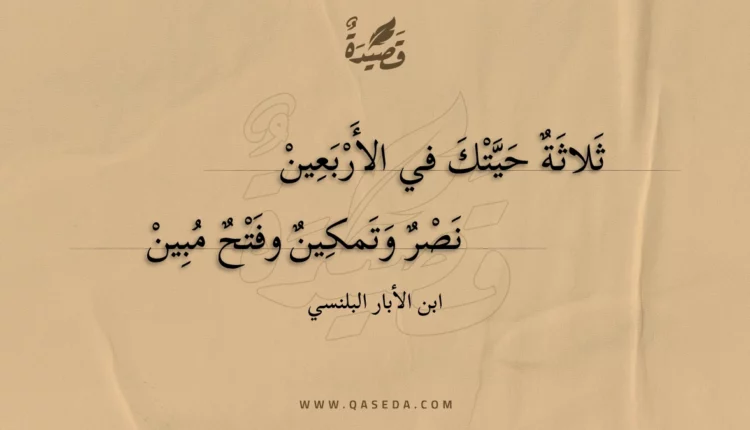 قَصِيدَةٌ
ثَلاثَةٌ حَيَّتْكَ في الأَرْبَعِينْ
نَصْرٌ وَتَمكِينٌ وفَتْحٌ مُبِينْ
ابن الأبار البلنسي
WWW.QASEDA.COM